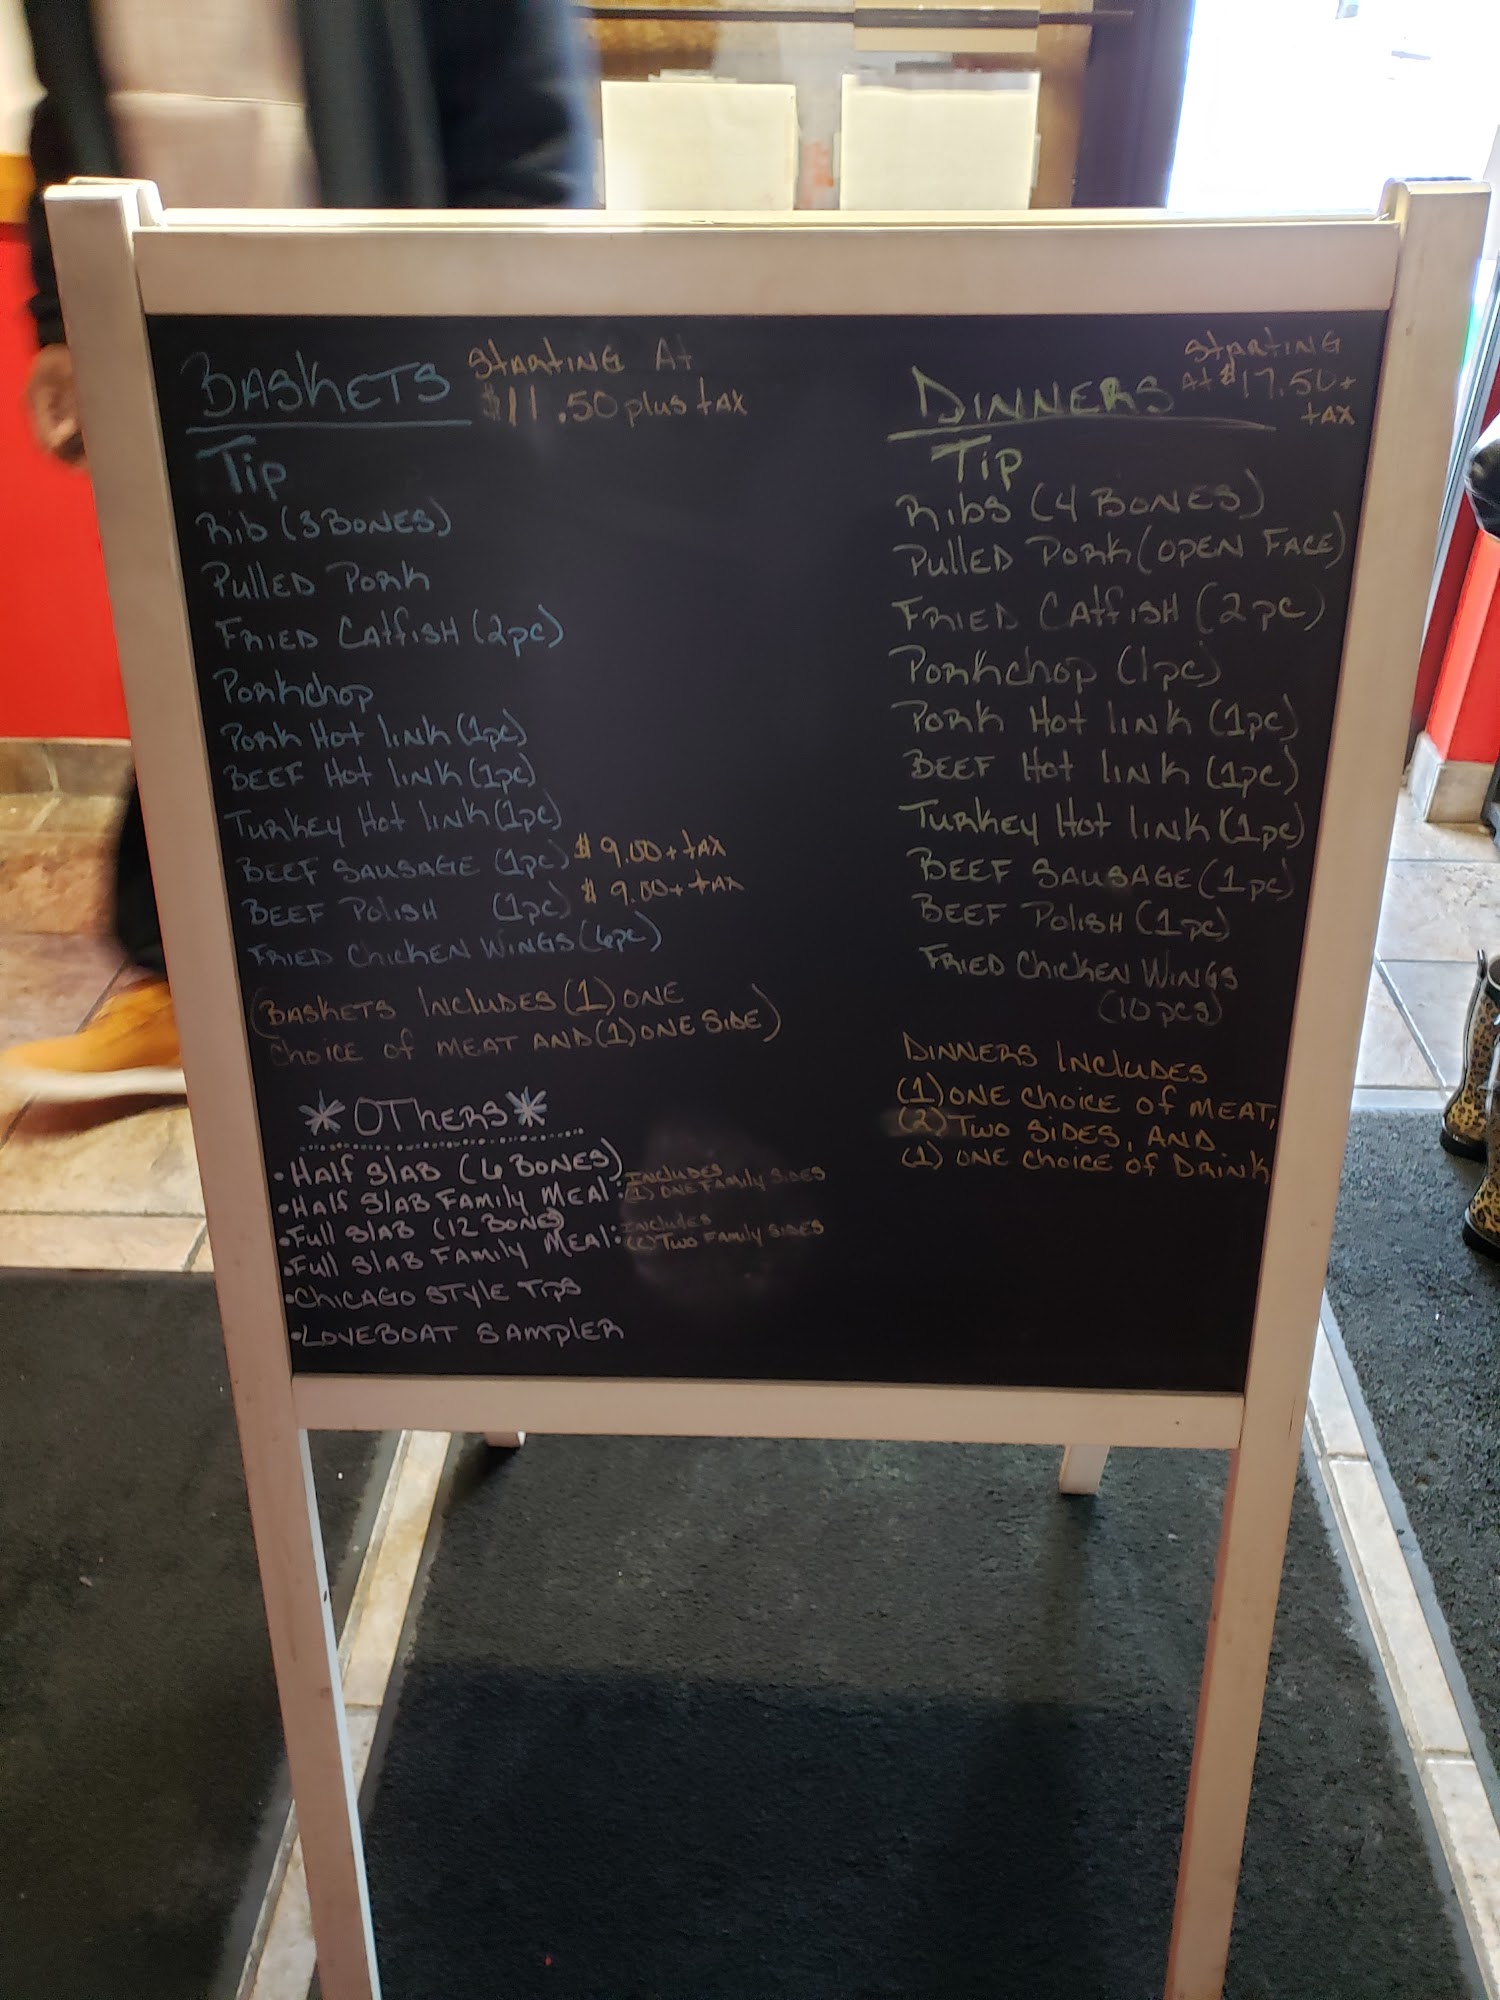 BASKETS STARTING At
$11.50 plus tAX
Tip
Rib (3 BONES)
Pulled Pork
FRIED CAtfisH (2pc)
Porkchop
Pork Hot link (1pc)
BEEF Hot link (1pc)
Turkey Hot link (1pc)
BEEF SAUSAGE (1pc) $9.00 + tAX
BEEF Polish (1pc) $9.00 + tAX
FRIED Chicken WINGS (6pc)
(BASKETS INCludES (1) ONE
choice of MEAT AND (1) ONE SIDE)
*OTHERS*
•HAlf SlAB (6 BONES)
•HAlf SlAB FAmily MEAl: INCludES (1) ONE FAmily SIDES
•Full SlAB (12 BONES)
•Full SlAB FAmily MEAl: INCludES (2) Two FAmily SIDES
•CHICAGO STYlE Tips
•LOVEBOAT SAMplER
DINNERS STARTING
At $17.50 +
tAX
Tip
Ribs (4 BONES)
Pulled Pork (OPEN FACE)
FRIED CAtfisH (2pc)
Porkchop (1pc)
Pork Hot link (1pc)
BEEF Hot link (1pc)
Turkey Hot link (1pc)
BEEF SAUSAGE (1pc)
BEEF Polish (1pc)
FRIED Chicken WINGS
(10pcs)
DINNERS INCludES
(1) ONE choice of MEAT,
(2) Two SIDES, AND
(1) ONE choice of Drink